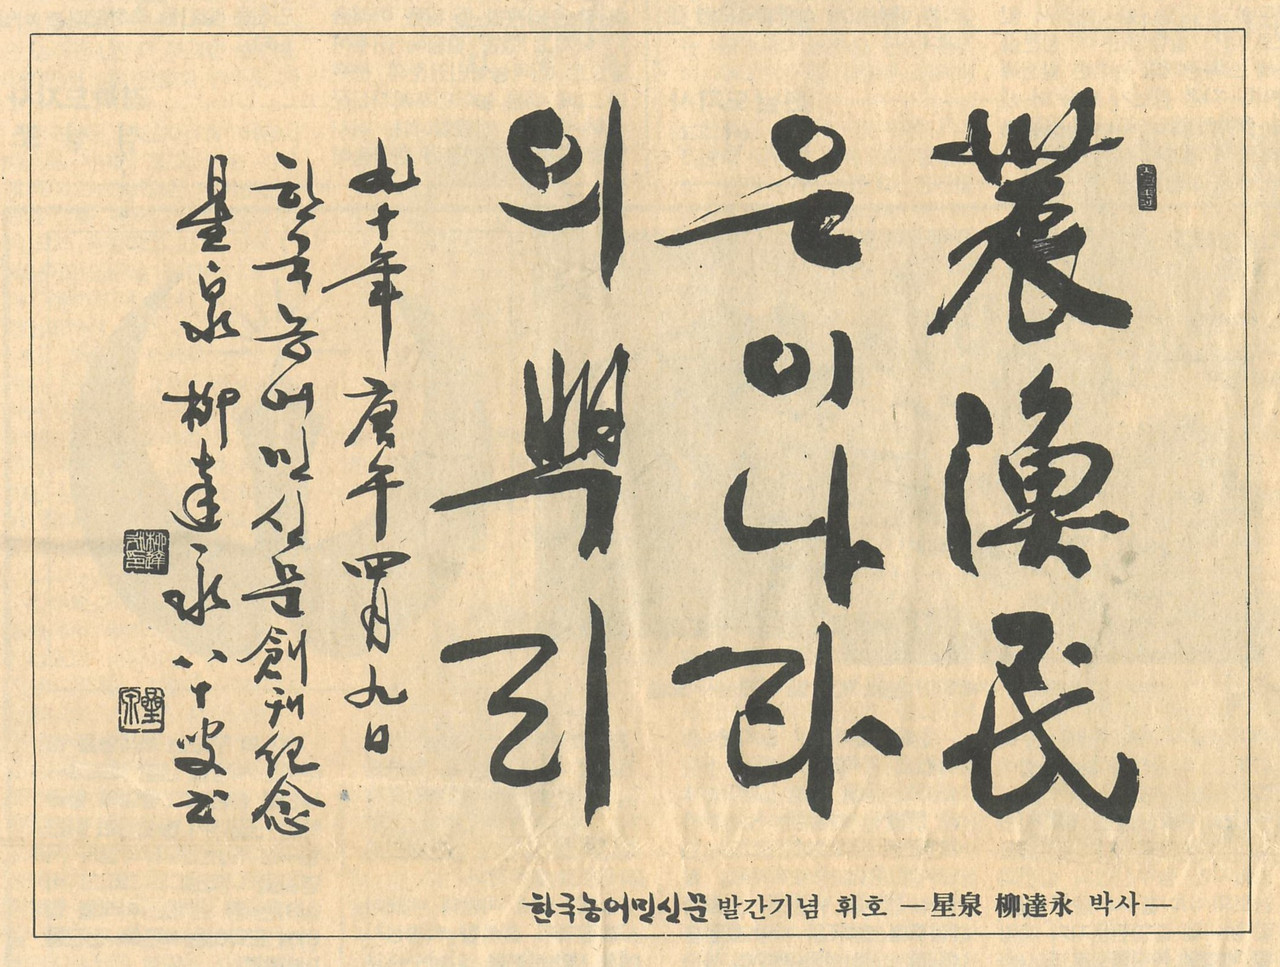 農漁民
은이나라
의뿌리
九十年 庚午 四月 九日
한국농어민신문 創刊紀念
星泉 柳達永 八十叟书
柳達永印
星泉
한국농어민신문 발간기념 휘호 ─星泉 柳達永 박사─